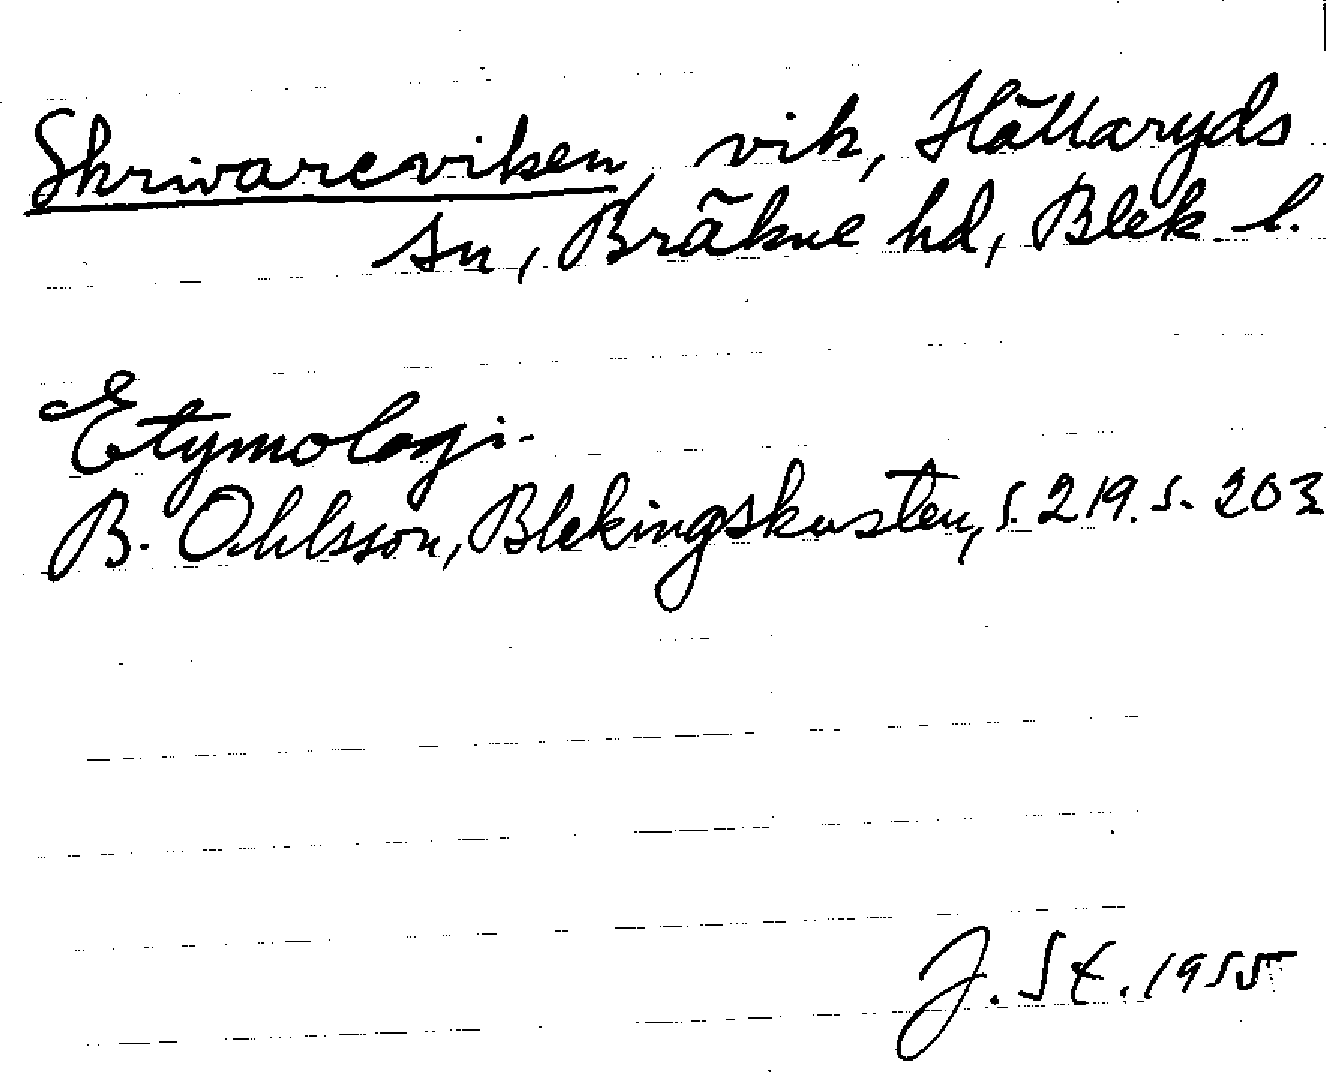 Skrivareviken, vik, Hällaryds
sn, Bräkne hd, Blek. l.
Etymologi.
B. Ohlsson, Blekingskusten, s. 219. s. 203
J. St. 1955